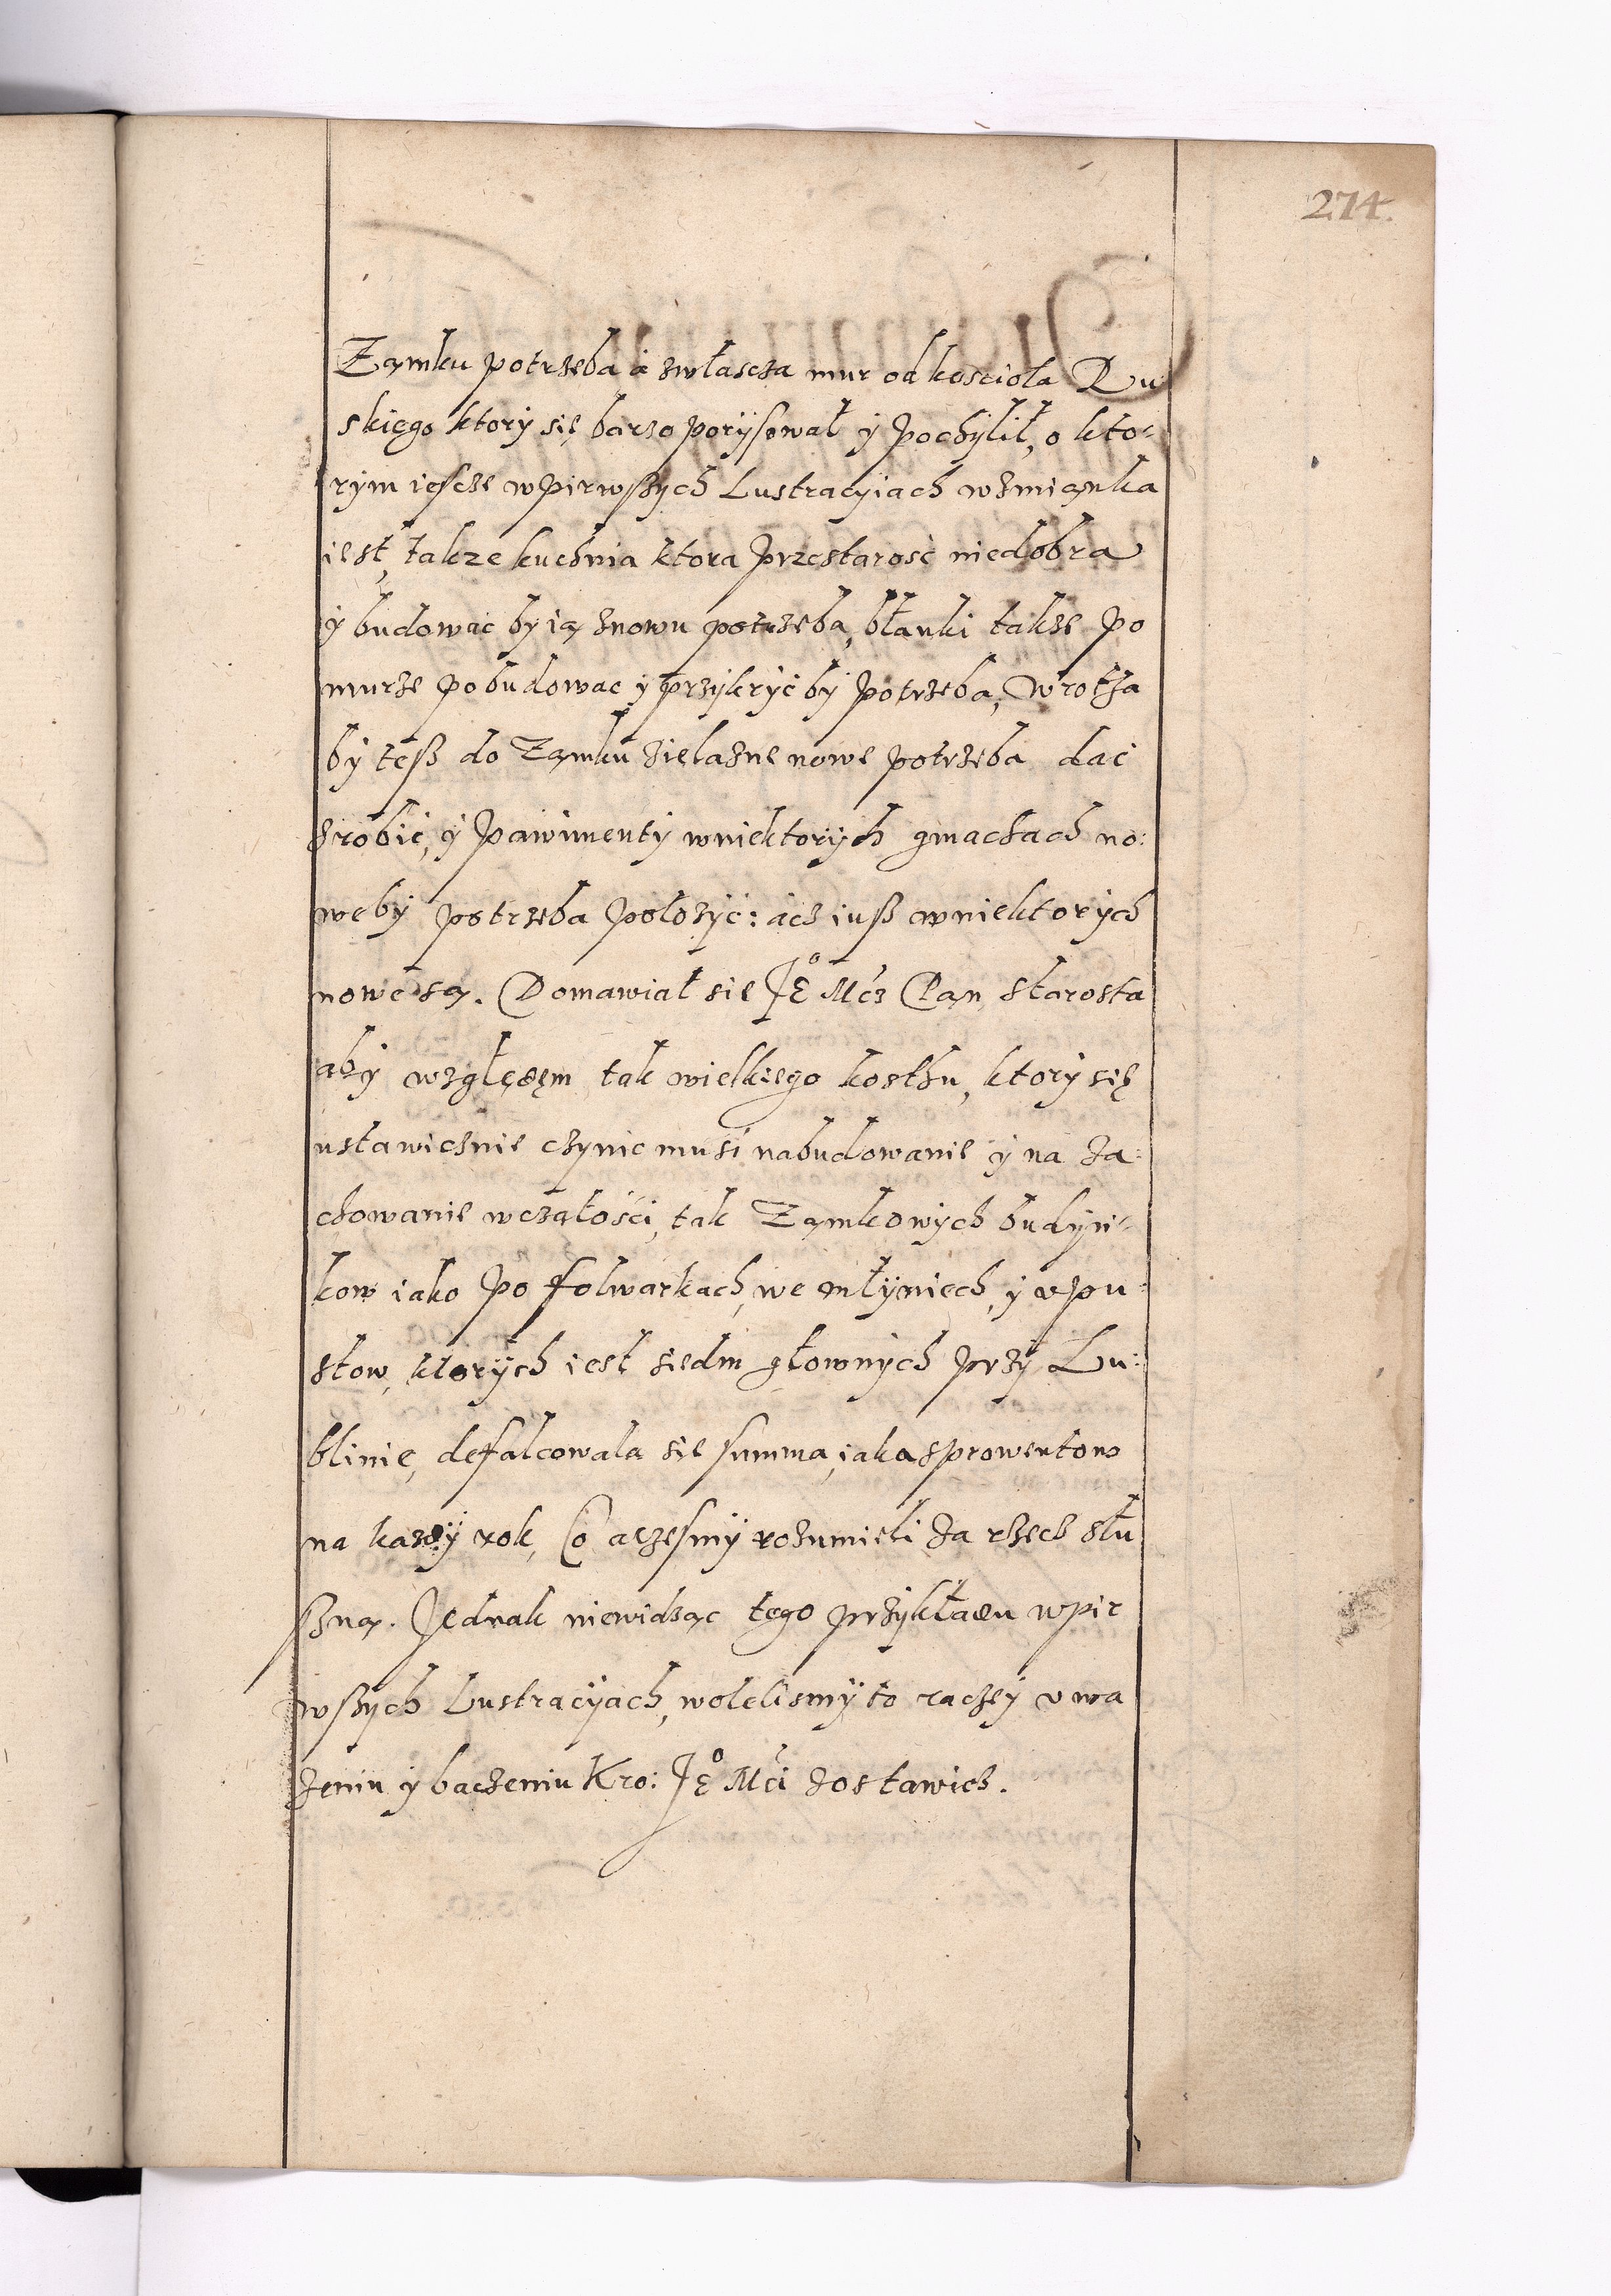 274.
Zamku potrzeba á zwłascza mur od kosciola Ru
skiego ktory się barzo porysował y pochylił, o kto-
rym iescze w pirwszych Lustracyiach wzmianka
iest, także kuchnia ktora przestarosć niedobra
y budowac by ią znowu potrzeba, błanki także po
murze pobudowac y przykryć by potrzeba, wrotha
by tesz do Zamku żielazne nowe potrzeba dać
zrobić, y pawimenty w niektorych gmachach no:
we by potrzeba położyć: acz iusz w niektorych
nowe są. Domawiał sie Jeo Mcz Pan Starosta
aby względem tak wielkiego kosthu, ktory się
ustawicznie czynic musi nabudowanie y na za:
chowanie wcząłości, tak Zamkowych budyn-
kow iako po folwarkach, we młyniech, y vpu:
stow, ktorych iest siedm głownych przy Lu:
blinie, defalcowala sie summa, iaka sprowentow
na każdy rok, Co aczesmy rozumieli za rzecz słu
szną. Jednak niewidząc tego przykładu w pir
wszych Lustracyach, wolelismy to raczey v wa
żeniu y baczeniu Kro: Jeo Mći zostawicz.